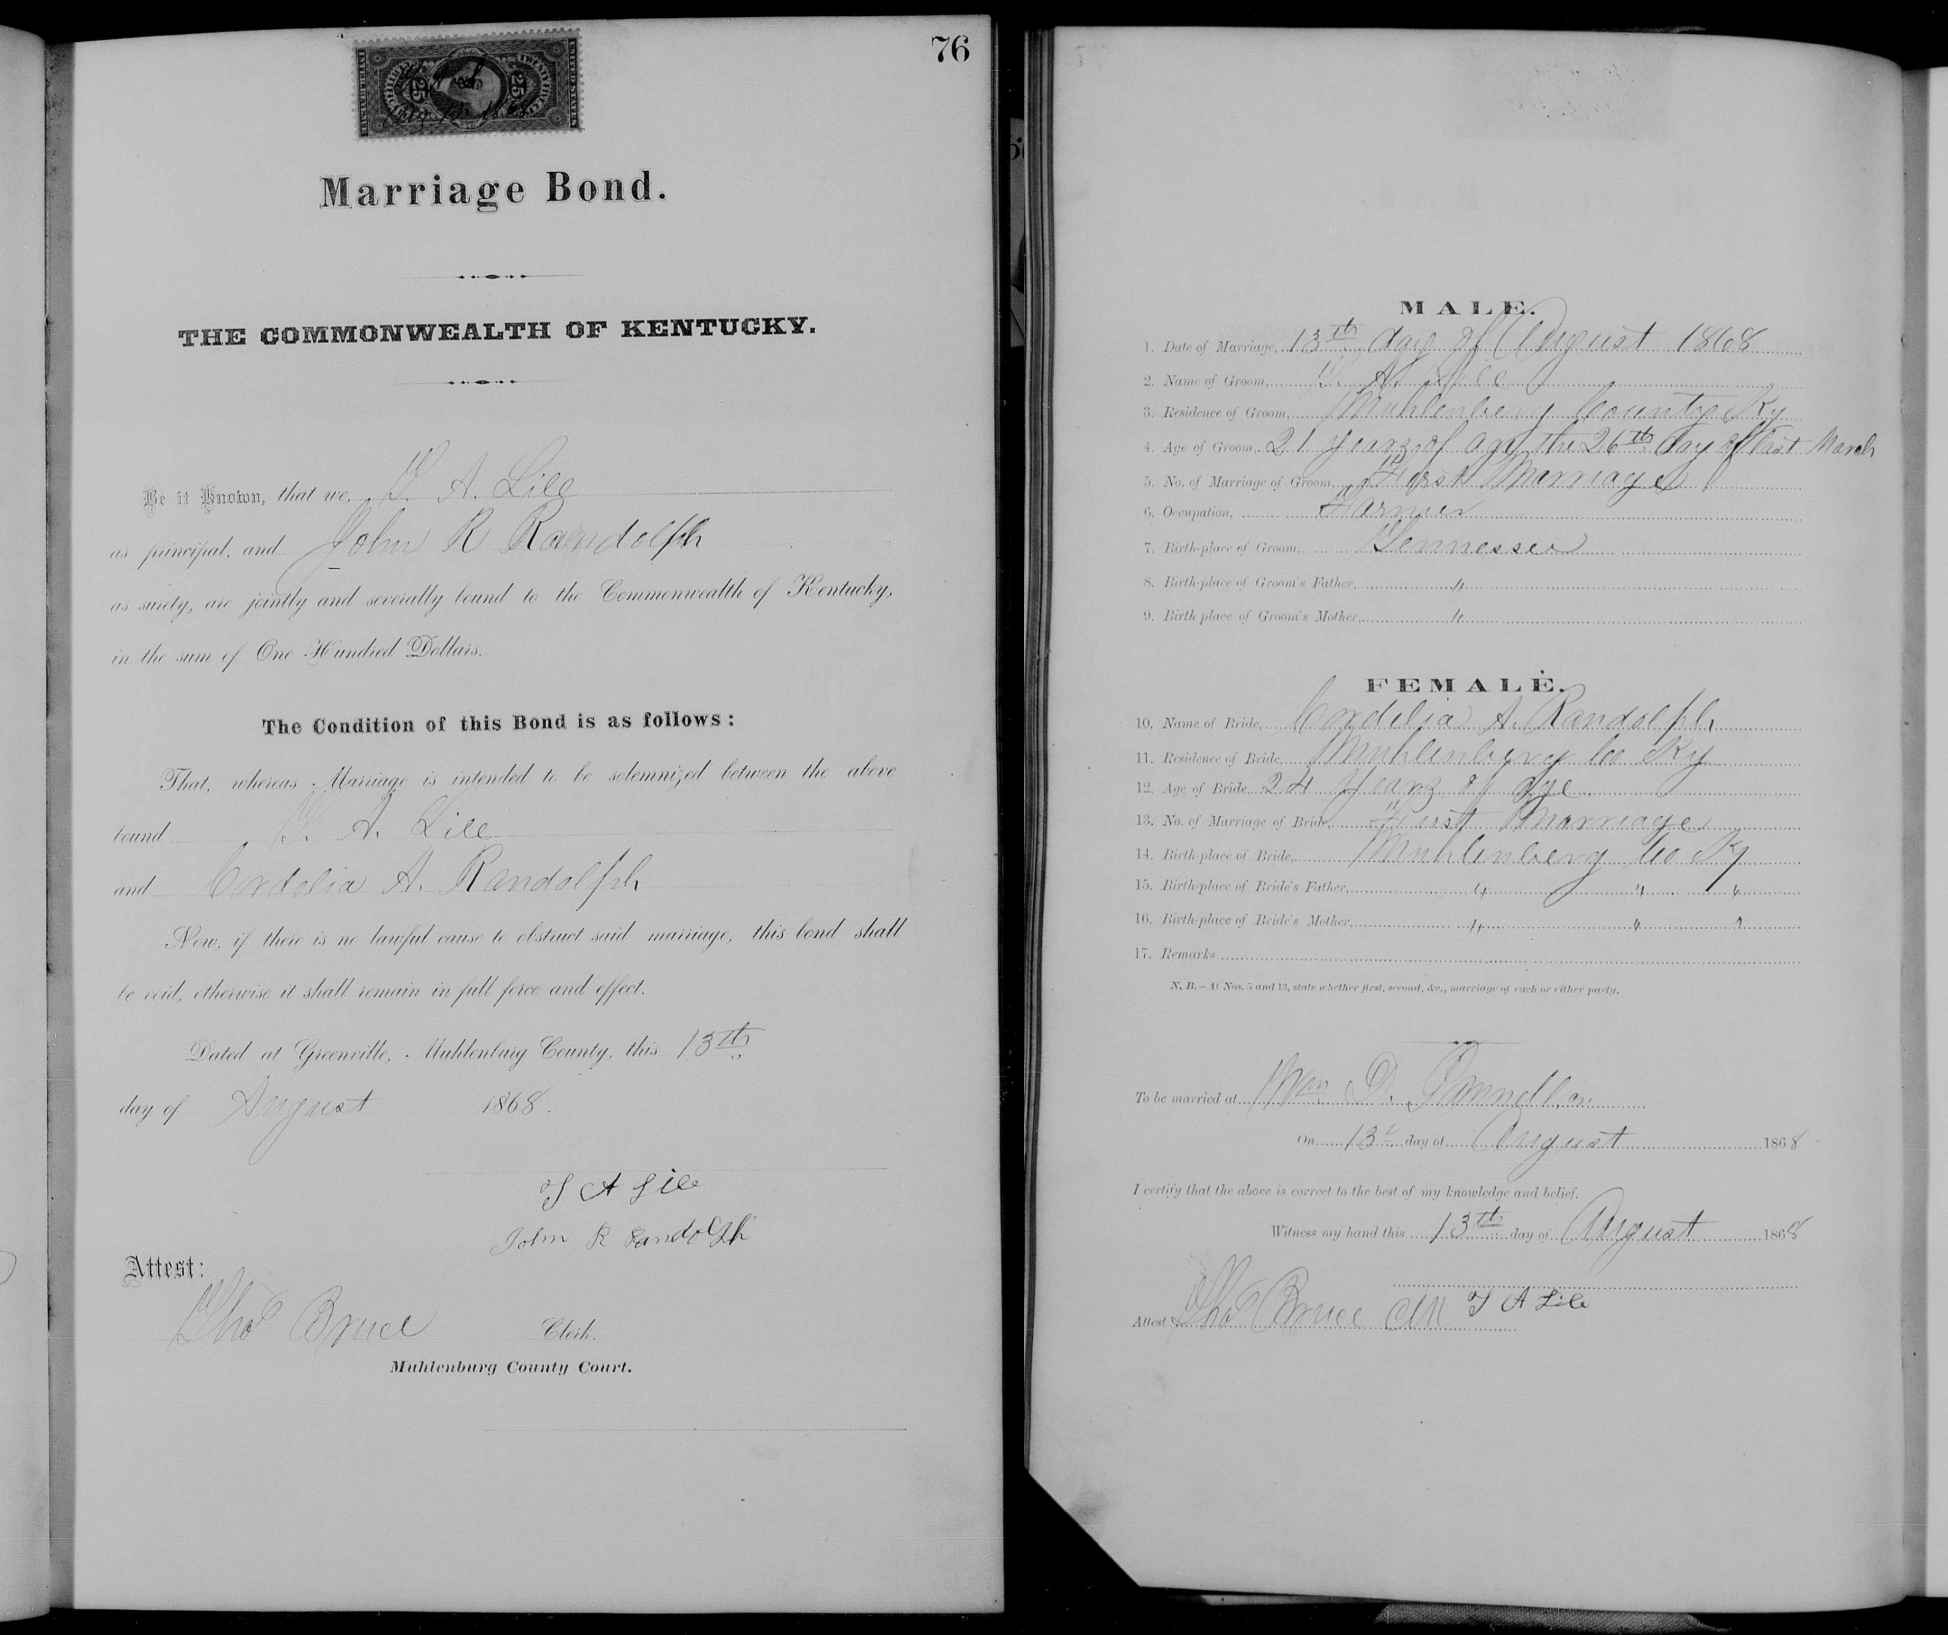 76
25 25
Marriage Bond.
THE COMMONWEALTH OF KENTUCKY.
Be it Known, that we, T. A. Lile
as principal, and John R Randolph
as surety, are jointly and severally bound to the Commonwealth of Kentucky,
in the sum of One Hundred Dollars.
The Condition of this Bond is as follows:
That, whereas Marriage is intended to be solemnized between the above
bound T. A. Lile
and Cordelia A. Randolph
Now, if there is no lawful cause to obstruct said marriage, this bond shall
be void, otherwise it shall remain in full force and effect.
Dated at Greenville, Muhlenburg County, this 13th
day of August 1868.
T A Lile
John R Randolph
Attest:
Thos Bruce Clerk.
Muhlenburg County Court.
MALE.
1. Date of Marriage, 13th day of August 1868
2. Name of Groom, T. A. Lile
3. Residence of Groom, Muhlenberg County Ky
4. Age of Groom, 21 years of age the 26th day of last March
5. No. of Marriage of Groom, First Marriage
6. Occupation, Farmer
7. Birth-place of Groom, Tennessee
8. Birth-place of Groom's Father, "
9. Birth place of Groom's Mother, "
FEMALE.
10. Name of Bride, Cordelia A. Randolph
11. Residence of Bride, Muhlenberg Co Ky
12. Age of Bride, 24 years of age
13. No. of Marriage of Bride, First Marriage
14. Birth-place of Bride, Muhlenberg Co Ky
15. Birth-place of Bride's Father, " " "
16. Birth-place of Bride's Mother, " " "
17. Remarks
N. B.—At Nos. 5 and 13, state whether first, second, &c., marriage of each or either party.
To be married at Wm D.
On 13th day of August 1868
I certify that the above is correct to the best of my knowledge and belief.
Witness my hand this 13th day of August 1868
T A Lile
Attest Thos Bruce Clk